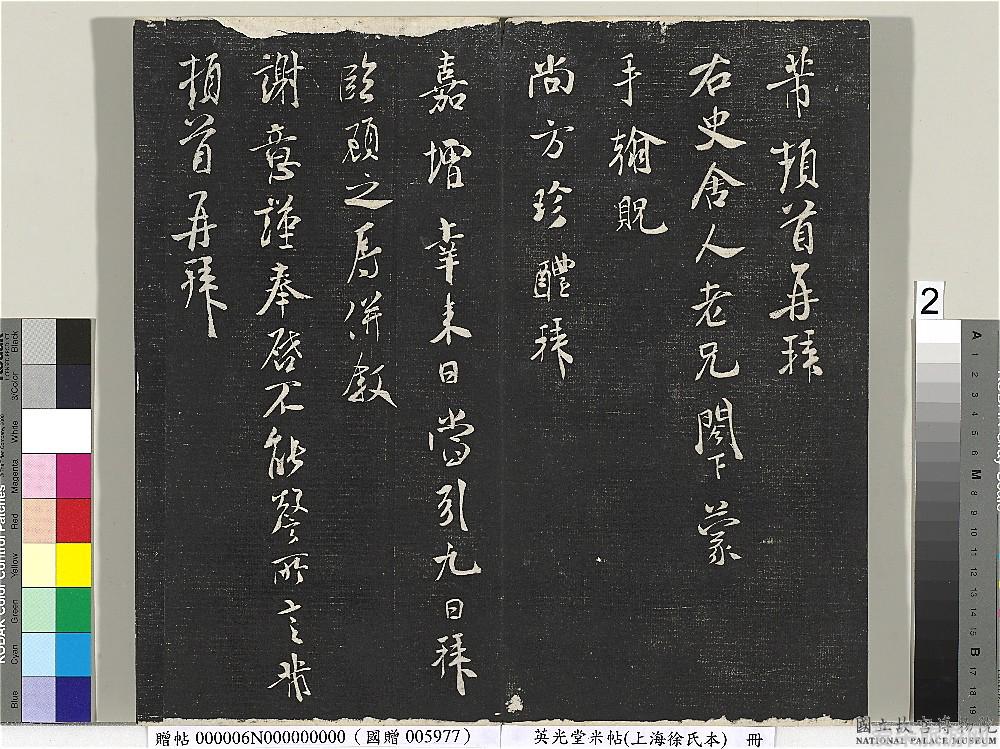 芾頓首再拜
右史舍人老兄閤下蒙
手翰貺
尚方珍醴拜
嘉增幸來日當引九日拜
臨顧之辱併敘
謝意謹奉啓不能罄所言芾
頓首再拜
2
贈帖 000006N000000000 (國贈 005977)
英光堂米帖(上海徐氏本) 冊
國立故宮博物院
NATIONAL PALACE MUSEUM
Black
3/Color
White
Magenta
Red
Yellow
Green
Cyan
Blue
A 1 2 3 4 5 6 M 8 9 10 11 12 13 14 15 B 17 18 19